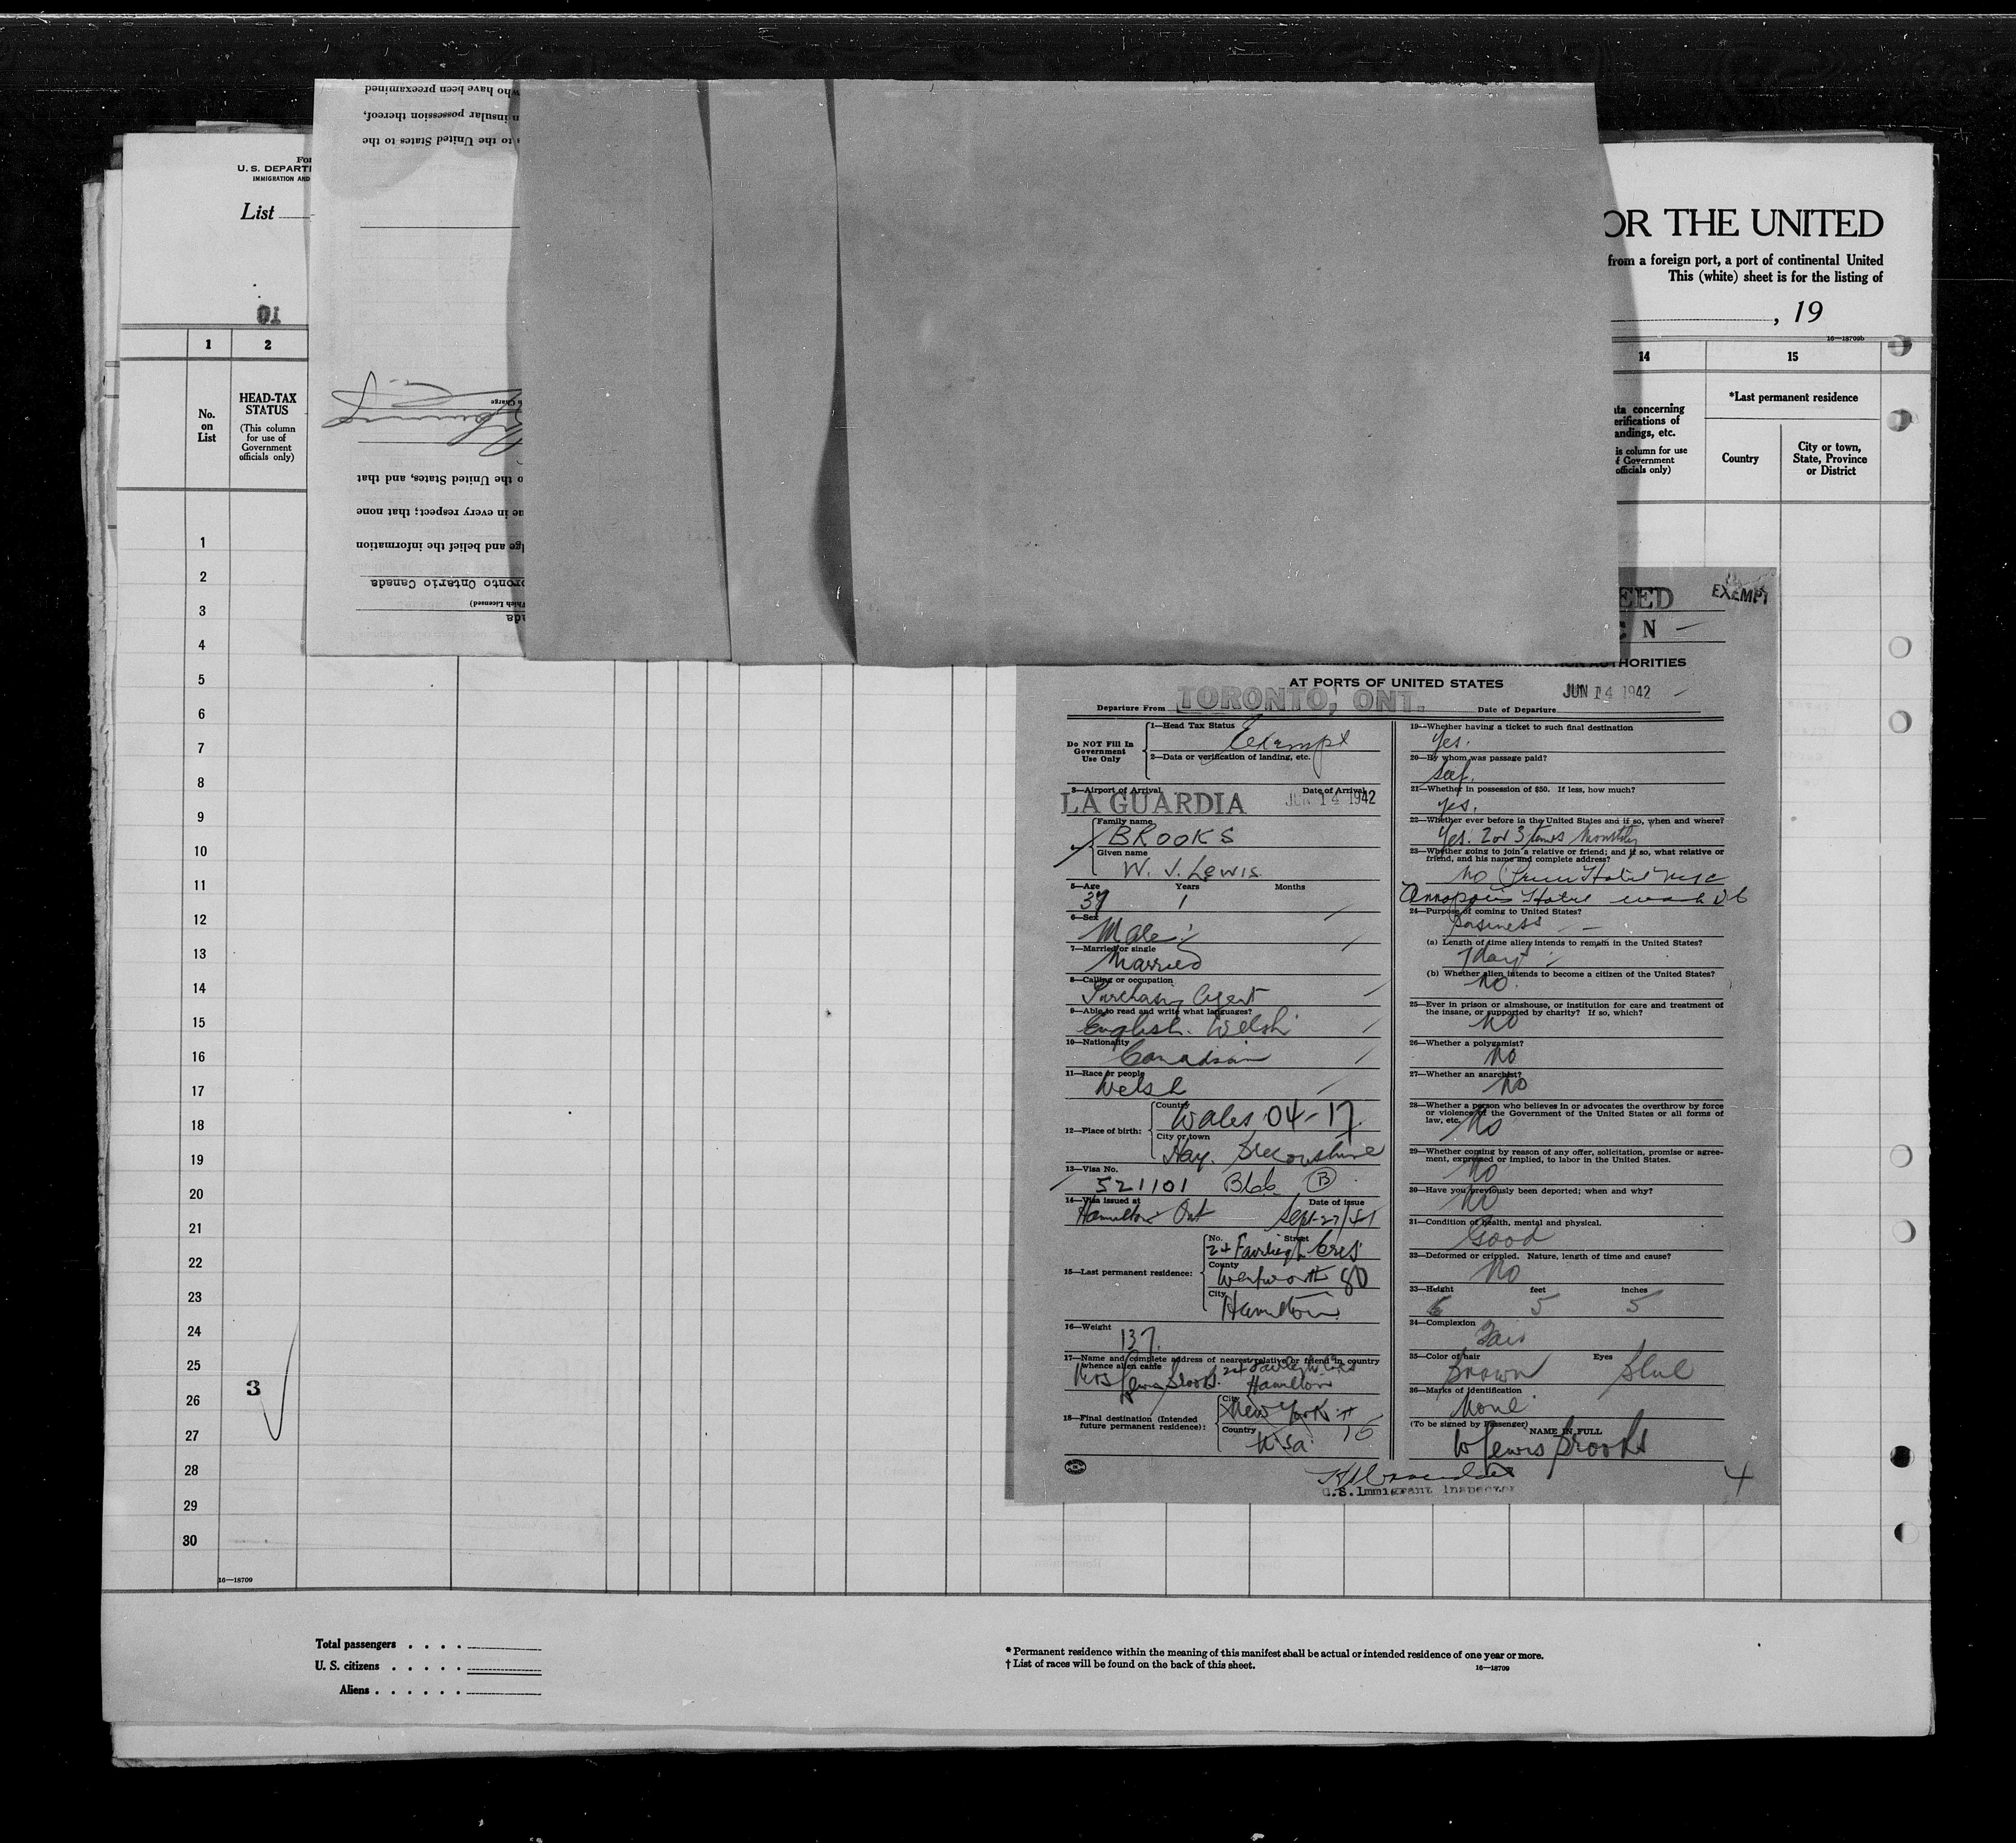 who have been preexamined
insular possession thereof,
to the United States to the
U. S. DEPARTM
IMMIGRATION AND
List
OR THE UNITED
from a foreign port, a port of continental United
This (white) sheet is for the listing of
, 19
16—18709b
10
1 2 14 15
No.
on
List
HEAD-TAX
STATUS
(This column
for use of
Government
officials only)
ata concerning
erifications of
andings, etc.
is column for use
f Government
officials only)
*Last permanent residence
Country
City or town,
State, Province
or District
a Charge
o the United States, and that
ue in every respect; that none
lge and belief the information
oronto Ontario Canada
Which Licensed)
ada
1
2
3
4
5
6
7
8
9
10
11
12
13
14
15
16
17
18
19
20
21
22
23
24
25
26
27
28
29
30
3
16—18709
EED
EXEMPT
C N
HORITIES
AT PORTS OF UNITED STATES
Departure From TORONTO, ONT.
Date of Departure JUN 14 1942
Do NOT Fill In
Government
Use Only
1—Head Tax Status Exempt
2—Data or verification of landing, etc.
3—Airport of Arrival Date of Arrival
LA GUARDIA JUN 14 1942
Family name
BROOKS
Given name
W. J. Lewis
5—Age Years Months
37 1
6—Sex
Male
7—Married or single
Married
8—Calling or occupation
Purchasing Agent
9—Able to read and write what languages?
English. Welsh
10—Nationality
Canadian
11—Race or people
Welsh
12—Place of birth:
Country
Wales 04-17
City or town
Hay. Breconshire
13—Visa No.
521101 Blb B
14—Visa issued at Date of issue
Hamilton Ont Sept-27/41
15—Last permanent residence:
No. Street
24 Fairleigh Cres
County
Wentworth 80
City
Hamilton
16—Weight
137
17—Name and complete address of nearest relative or friend in country
whence alien came
Mrs Lewis Brooks. 24 Fairleigh Cres
Hamilton
18—Final destination (Intended
future permanent residence):
City
New York
Country
USA
19—Whether having a ticket to such final destination
Yes.
20—By whom was passage paid?
Self.
21—Whether in possession of $50. If less, how much?
Yes.
22—Whether ever before in the United States and if so, when and where?
Yes. 2 or 3 times Monthly
23—Whether going to join a relative or friend; and if so, what relative or
friend, and his name and complete address?
No Penn Hotel NYC
Annapolis Hotel Wash DC
24—Purpose of coming to United States?
Business
(a) Length of time alien intends to remain in the United States?
7 days
(b) Whether alien intends to become a citizen of the United States?
No.
25—Ever in prison or almshouse, or institution for care and treatment of
the insane, or supported by charity? If so, which?
No
26—Whether a polygamist?
No
27—Whether an anarchist?
No
28—Whether a person who believes in or advocates the overthrow by force
or violence of the Government of the United States or all forms of
law, etc.
No
29—Whether coming by reason of any offer, solicitation, promise or agree-
ment, expressed or implied, to labor in the United States.
No
30—Have you previously been deported; when and why?
No
31—Condition of health, mental and physical.
Good
32—Deformed or crippled. Nature, length of time and cause?
No
33—Height feet inches
5 5
34—Complexion
Fair
35—Color of hair Eyes
Brown Blue
36—Marks of identification
None
(To be signed by Passenger)
NAME IN FULL
W Lewis Brooks
U.S. Immigrant Inspector
4
Total passengers . . . .
U. S. citizens . . . . .
Aliens . . . . . .
* Permanent residence within the meaning of this manifest shall be actual or intended residence of one year or more.
† List of races will be found on the back of this sheet.
16—18709